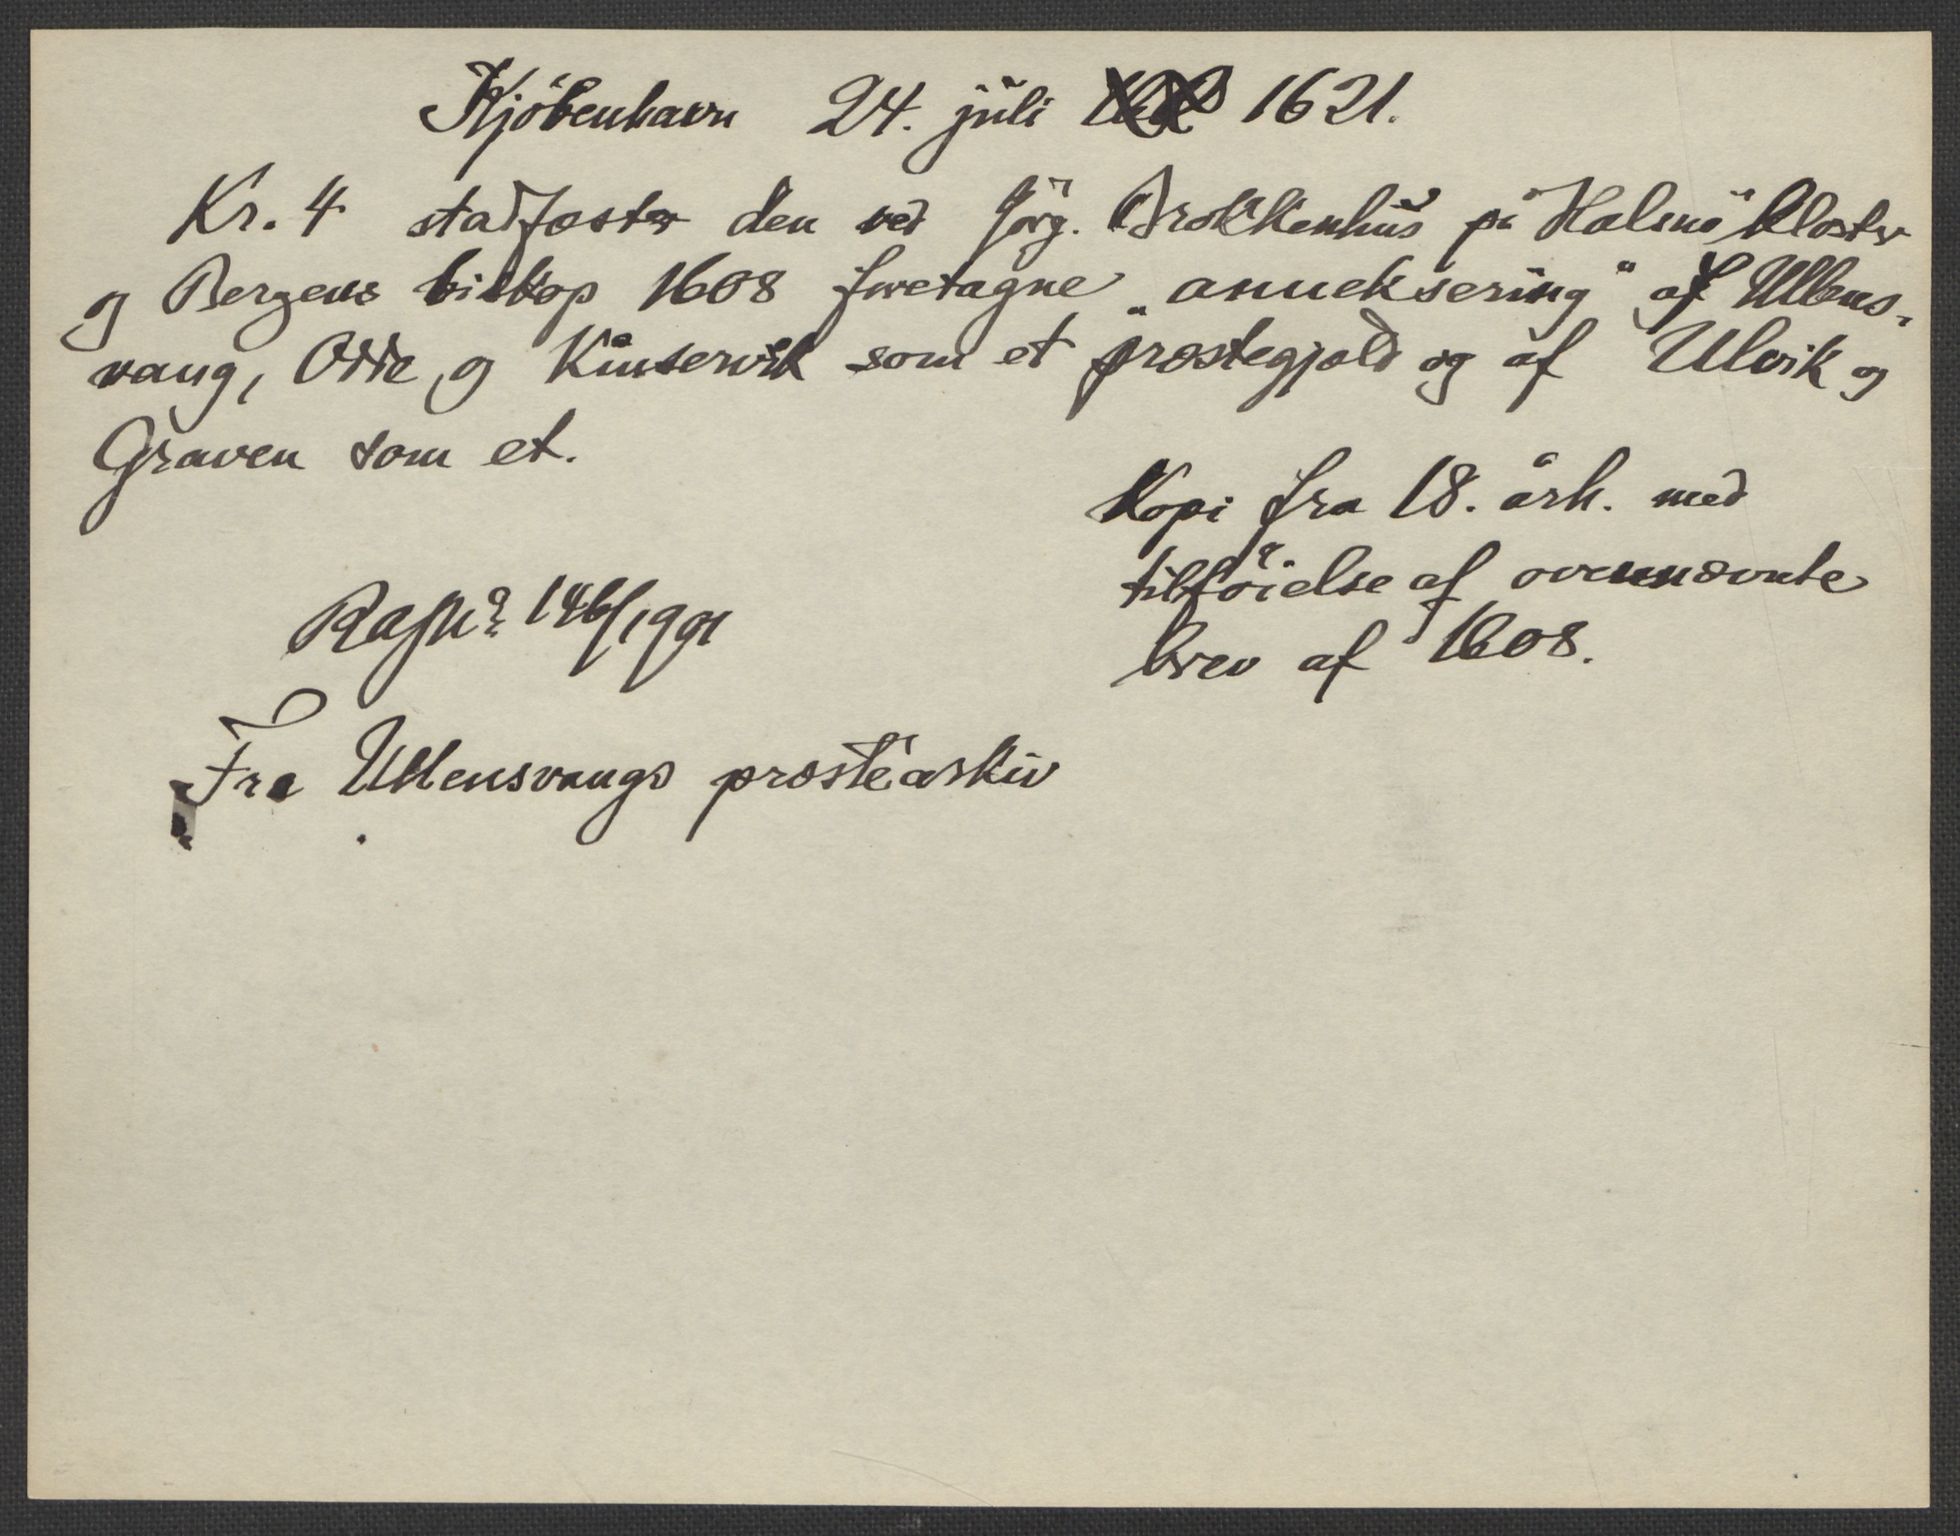 Kjöbenhavn 24. juli 1621.
Kr. 4 stadfæster den ved Jörg. Brokkenhus på Halsnö kloster
og Bergens biskop 1608 foretagne „anneksering" af Ullens-
vang, Odde, og Kinservik som et præstegjæld og af Ulvik og
Graven som et.
Kopi fra 18. årh. med
tilföielse af ovennævnte
brev af 1608.
146/1991
Fra Ullensvangs præstearkiv